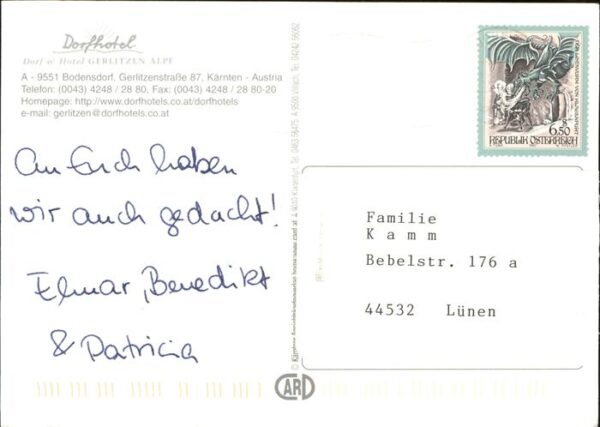 Dorfhotel
Dorf o' Hotel GERLITZEN ALPE
A - 9551 Bodensdorf, Gerlitzenstraße 87, Kärnten - Austria
Telefon: (0043) 4248 / 28 80, Fax: (0043) 4248 / 28 80-20
Homepage: http://www.dorfhotels.co.at/dorfhotels
e-mail: gerlitzen@dorfhotels.co.at
An Euch haben
wir auch gedacht!
Elmar, Benedikt
& Patricia
CARD
6.50
REPUBLIK ÖSTERREICH
Familie
Kamm
Bebelstr. 176 a
44532 Lünen